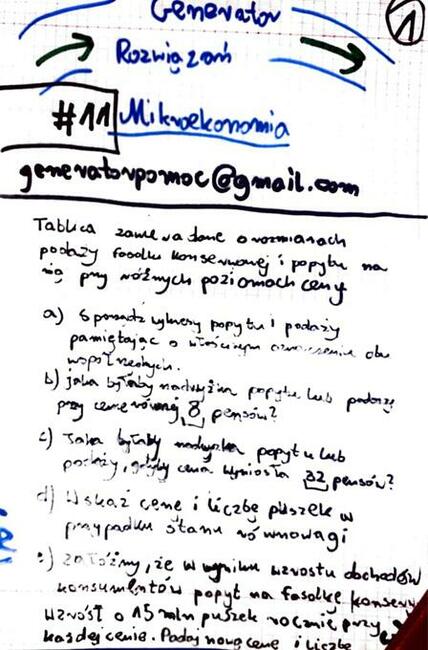 Generator
1
Rozwiązań
#11 Mikroekonomia
generatorpomoc@gmail.com
Tablica zawiera dane o rozmiarach
podaży fasolki konserwowej i popytu na
nią przy różnych poziomach ceny
a) Sporządź wykresy popytu i podaży
pamiętając o właściwym oznaczeniu obu
współrzędnych.
b) jaka byłaby nadwyżka popytu lub podaży
przy cenie równej 8 pensów?
c) Jaka byłaby nadwyżka popytu lub
podaży, gdyby cena wyniosła 32 pensów?
d) Wskaż cenę i liczbę puszek w
przypadku stanu równowagi
e) załóżmy, że w wyniku wzrostu dochodów
konsumentów popyt na fasolkę konserw
wzrósł o 15 mln puszek rocznie przy
każdej cenie. Podaj nową cenę i liczbę